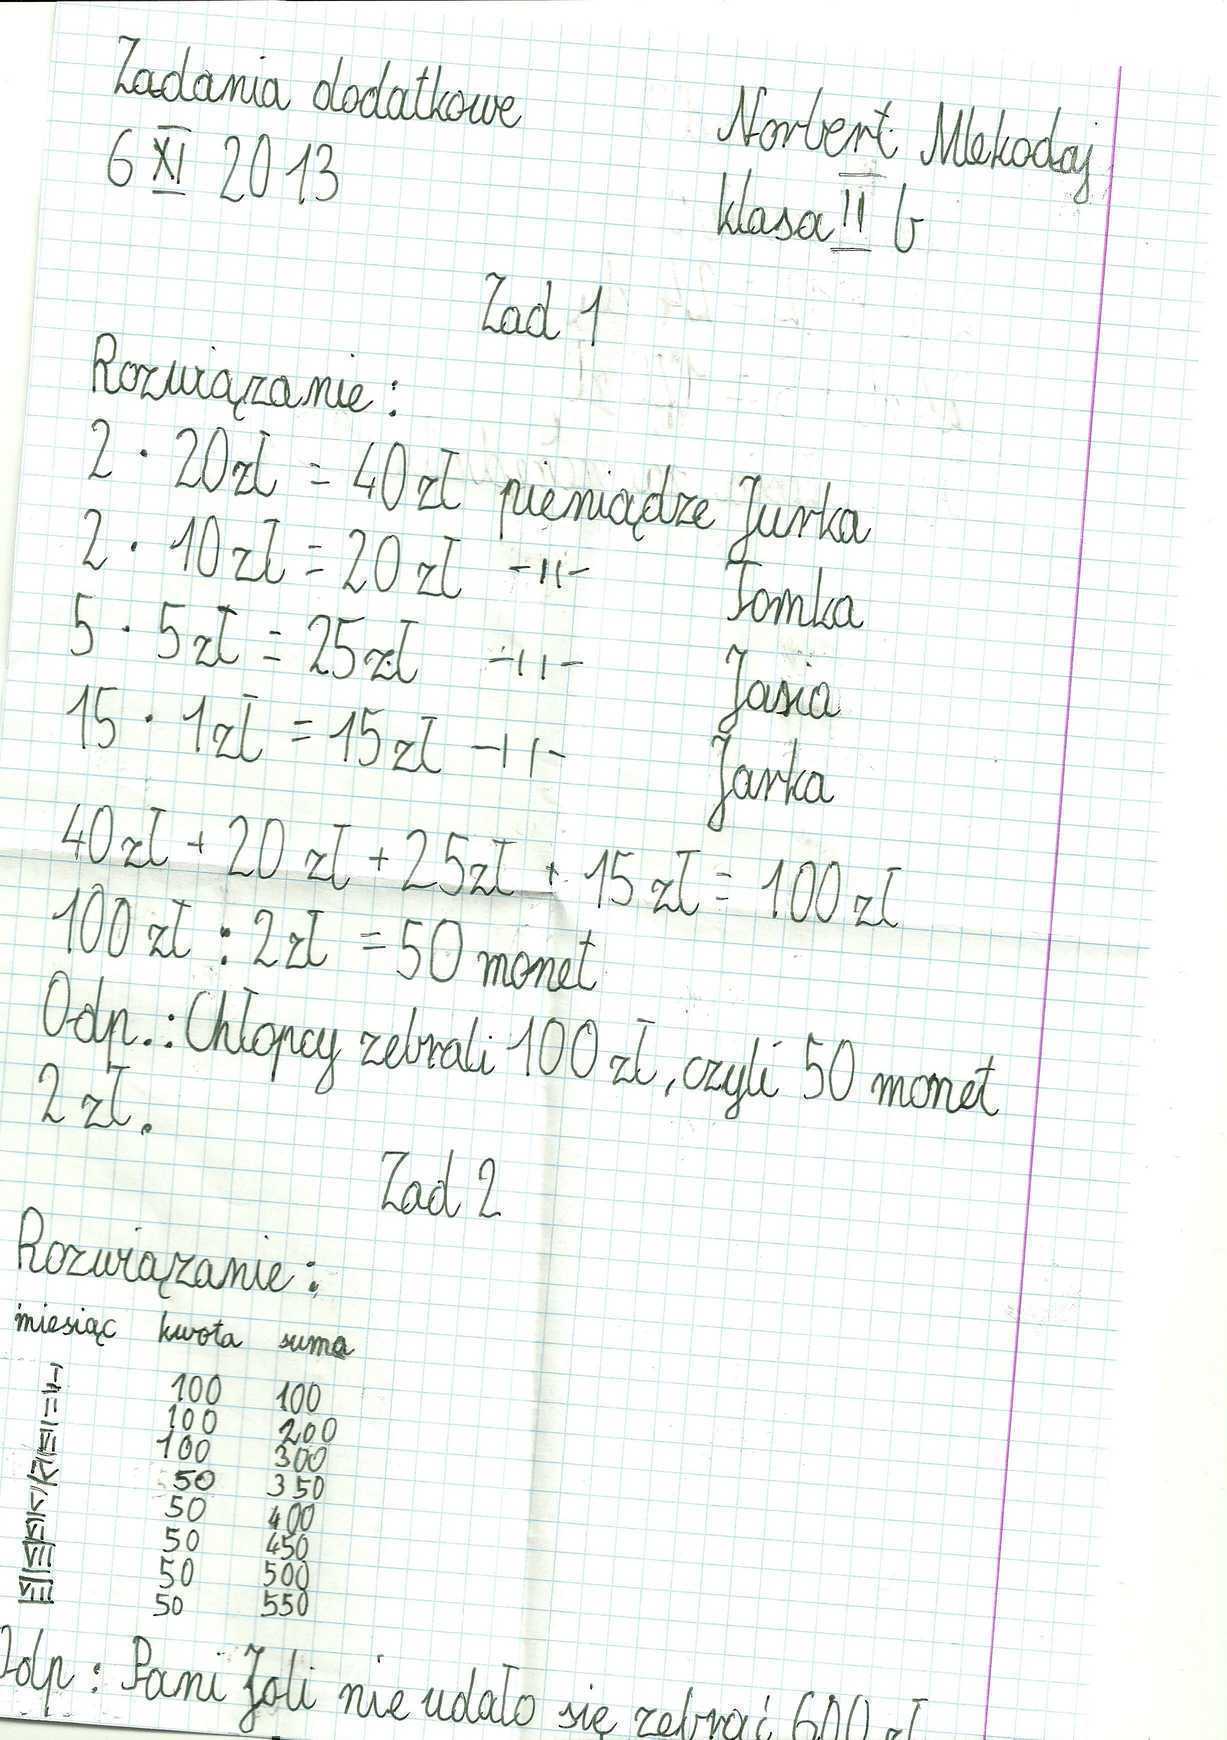 Zadania dodatkowe
6 XI 2013
Norbert Mlekodaj
klasa II b
Zad 1
Rozwiązanie:
2 · 20zł = 40zł pieniądze Jurka
2 · 10zł = 20zł -II- Tomka
5 · 5zł = 25zł -II- Jasia
15 · 1zł = 15zł -II- Jarka
40zł + 20zł + 25zł + 15zł = 100zł
100zł : 2zł = 50 monet
Odp.: Chłopcy zebrali 100zł, czyli 50 monet
2zł.
Zad 2
Rozwiązanie:
miesiąc kwota suma
I 100 100
II 100 200
III 100 300
IV 50 350
V 50 400
VI 50 450
VII 50 500
VIII 50 550
Odp: Pani Joli nie udało się zebrać 600 zł